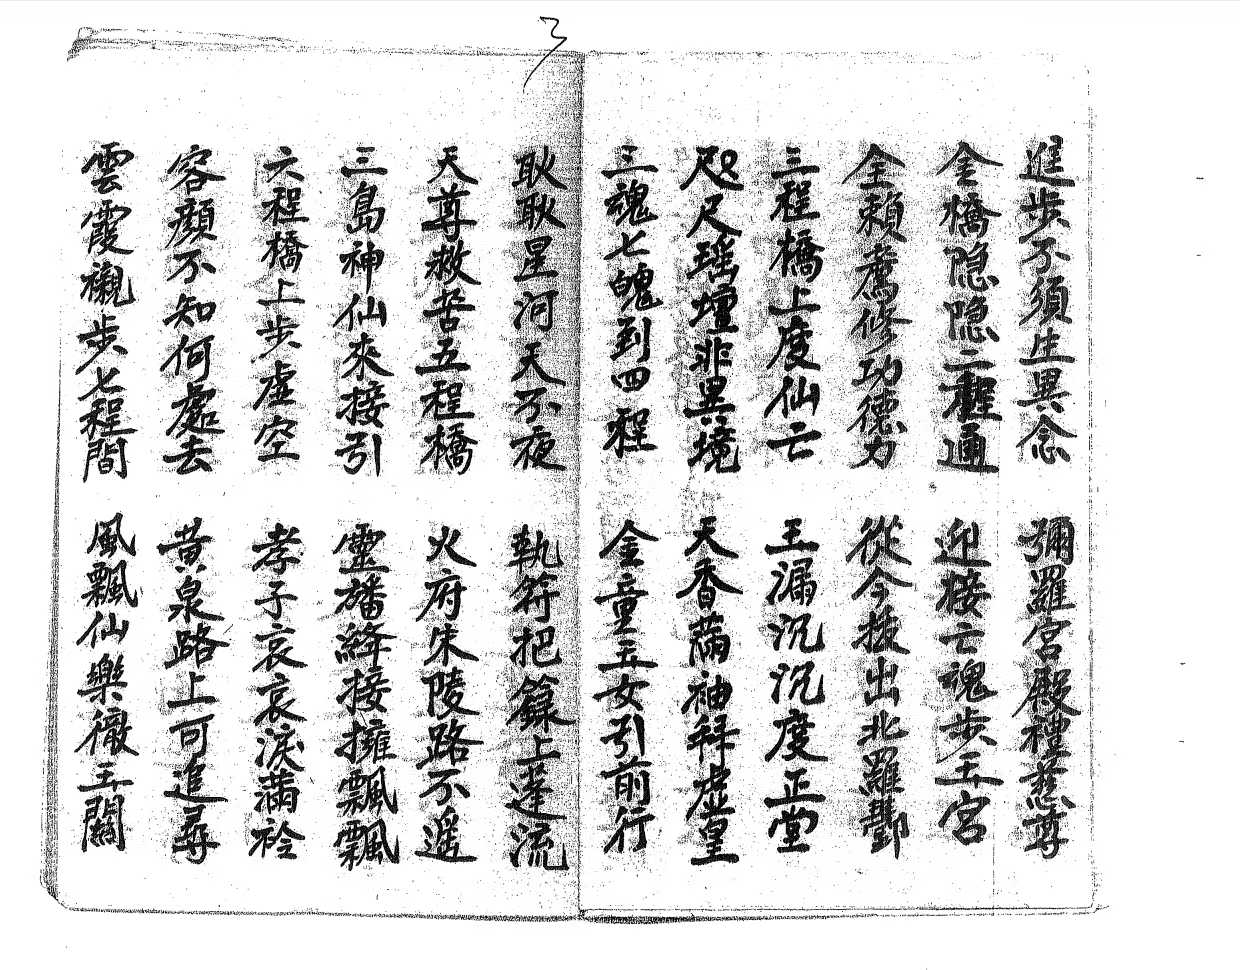 3
進步不須生異念　彌羅宮殿禮慈尊
金橋隐隐二程通　迎接亡魂步玉宮
全賴薦修功德力　從今拔出北羅酆
三程橋上度仙亡　玉漏沉沉度正堂
咫尺瑶壇非異境　天香滿袖拜虚皇
三魂七魄到四程　金童玉女引前行
耿耿星河天不夜　執符把籙上蓬流
天尊救苦五程橋　火府朱陵路不遥
三島神仙來接引　靈旛絳接擁飄飄
六程橋上步虛空　孝子哀哀淚滿衿
容顏不知何處去　黃泉路上可追尋
雲霞襯步七程間　風飄仙樂徹玉關